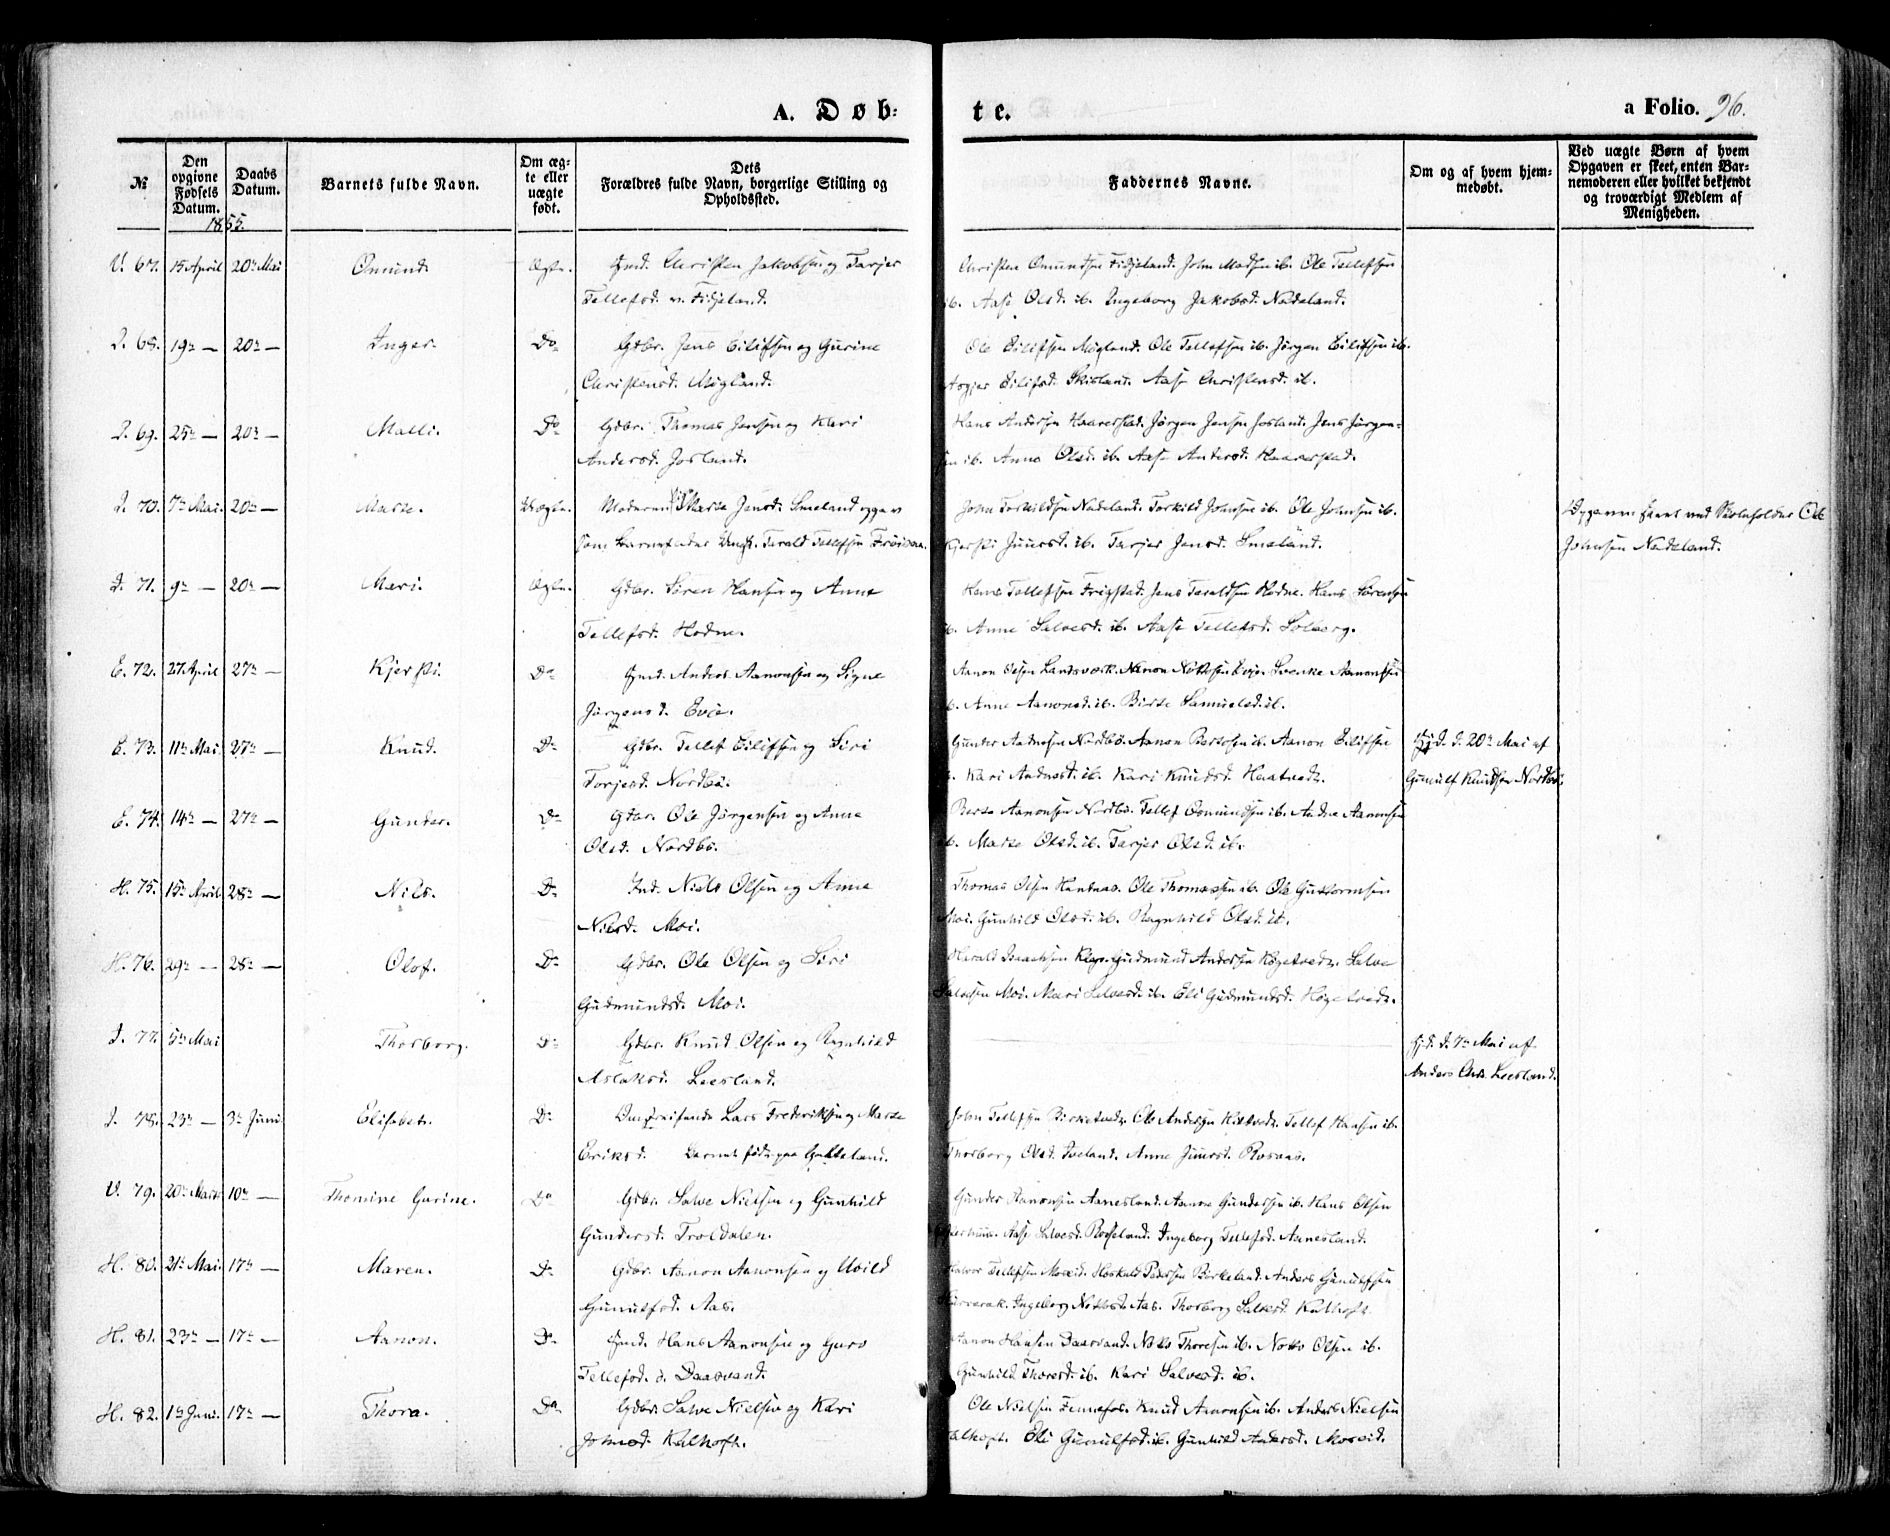 A. Døb:
te.
a Folio. 96.
№
Den opgivne Fødsels Datum.
Daabs Datum.
Barnets fulde Navn.
Om ægte eller uægte født.
Dets Forældres fulde Navn, borgerlige Stilling og Opholdssted.
Faddernes Navne.
Om og af hvem hjemmedøbt.
Ved uægte Børn af hvem Opgaven er skeet, enten Barnemoderen eller hvilket bekjendt og troværdigt Medlem af Menigheden.
1855.
V. 67. 15 April 20de Mai Omund. Ægte. Christen Jakobsen og Tarjer
Tellefsd. v. Fidjeland.
Christen Omundsen Fidjeland. John Madsen ib. Ole Tellefsen
ib. Aase Olsd. ib. Ingeborg Jakobsd. Nadeland.
I. 68. 19de — 20de — Inger. Do Gdbr. Jens Eilifsen og Gurine
Christensd. Møgland.
Ole Eilifsen Møgland. Ole Tellefsen ib. Jørgen Eilifsen ib.
Asgjer Eilifsd. Skisland. Aase Christensd. ib.
I. 69. 25de — 20de — Malli. Do Gdbr. Thomas Jensen og Kari
Andersd. Josland.
Hans Andersen Haarestad. Jørgen Jensen Josland. Jens Jørgen-
sen ib. Anne Olsd. ib. Aase Andersd. Haarestad.
I. 70. 7de Mai. 20de — Marte. Uægte. Moderen Marte Jensd. Smeland opgav
som Barnefader Ungk. Tarald Tellefsen Frøisaa.
John Torkildsen Nadeland. Torkild Johnsen ib. Ole Johnsen ib.
Kjersti Juursd. ib. Tarjer Jensd. Smeland.
Opgaven skeet ved Skoleholder Ole
Johnsen Nadeland.
I. 71. 9de — 20de — Mari. Ægte. Gdbr. Søren Hansen og Anne
Tellefsd. Hodne.
Hans Tellefsen Frigstad. Jens Taraldsen Hodne. Hans Sørensen
ib. Anne Salvesd. ib. Aase Tellefsd. Solberg.
E. 72. 27. April 27de — Kjersti. Do Anders Aanonsen og Signe
Jørgensd. Evje.
Aanon Olsen Landsverk. Aanon Evje. Svenke Aanonsen
ib. Anne Aanonsd. ib. Birte Samuelsd. ib.
E. 73. 11te Mai. 27de — Knud. Do Gdbr. Tellef Eilifsen og Siri
Torjesd. Nordbø.
Gunder Aadnesen Nordbø. Aanon Bertosen ib. Aanon Eilifsen
ib. Kari Aadnesd. ib. Kari Knudsd. Haatvedt.
Hjd. d. 20de Mai af
Gunulf Knudsen Nordbø.
E. 74. 14de — 27de — Gunder. Do Gdbr. Ole Jørgensen og Anne
Olsd. Nordbø.
Aanonsen Nordbø. Tellef Osmundsen ib. Aadne Aanonsen
ib. Marte Olsd. ib. Tarjer Olsd. ib.
H. 75. 15de April. 28de — Nils. Do Ind. Niels Olsen og Anne
Nilsd. Moi.
Thomas Olsen Hantnas. Ole Thomassen ib. Ole Guttormsen
Moi. Gunhild Olsd. ib. Ragnhild Olsd. ib.
H. 76. 29de — 28de — Olof. Do Gdbr. Ole Olsen og Siri
Gudmundsd. Moi.
Harald Isaachsen Gudmund Andersen Høgetvedt. Salve
Salvesen Moi. Mari Salvesd. ib. Eli Gudmundsd. Høgetvedt.
I. 77. 5de Mai Thorborg. Do Gdbr. Knud Olsen og Ragnhild
Aslaksd. Leesland.
Hjd. d. 7de Mai af
Anders Chr. Leesland.
I. 78. 23de — 3de Juni. Elisabet. Do Omstreifende Lars Frederiksen og Marte
Eriksd. Barnet født paa Gasteland.
John Tellefsen Birketvedt. Ole Andersen Tellef Hansen ib.
Thorborg Olsd. Iveland. Anne Juursd. Rosvas.
V. 79. 20de Marts 10de — Thomine Gurine. Do Gdbr. Salve Nielsen og Gunhild
Gundersd. Troldalen.
Gunder Aanonsen Aanesland. Aanon Gundersen ib. Hans Olsen
Aase Salvesd. Røiseland. Ingeborg Tellefsd. Aanesland.
H. 80. 21de Mai. 17de — Maren. Do Gdbr. Aanon Aanonsen og Uvild
Gunulfsd. Aas.
Halvor Tellefsen Moseid. Hoskuld Pedersen Birkeland. Anders Gunulfsen
Ingeborg Notosd. Aas. Thorborg Salvesd. Kalhoft.
H. 81. 23de — 17de — Aanon. Do Hans Aanonsen og Guro
Tellefsd. Daasvand.
Aanon Hansen Daasvand. Noto Thoresen ib. Noto Olsen ib.
Gunhild Thoresd. ib. Kari Salvesd. ib.
H. 82. 1te Juni. 17de — Thora. Do Gdbr. Salve Nielsen og Kari
Johnsd. Kalhoft.
Ole Nielsen Fennefos. Knud Aanonsen ib. Anders Nielsen
Kalhoft. Eli Gunulfsd. ib. Gunhild Andersd. Moseid.